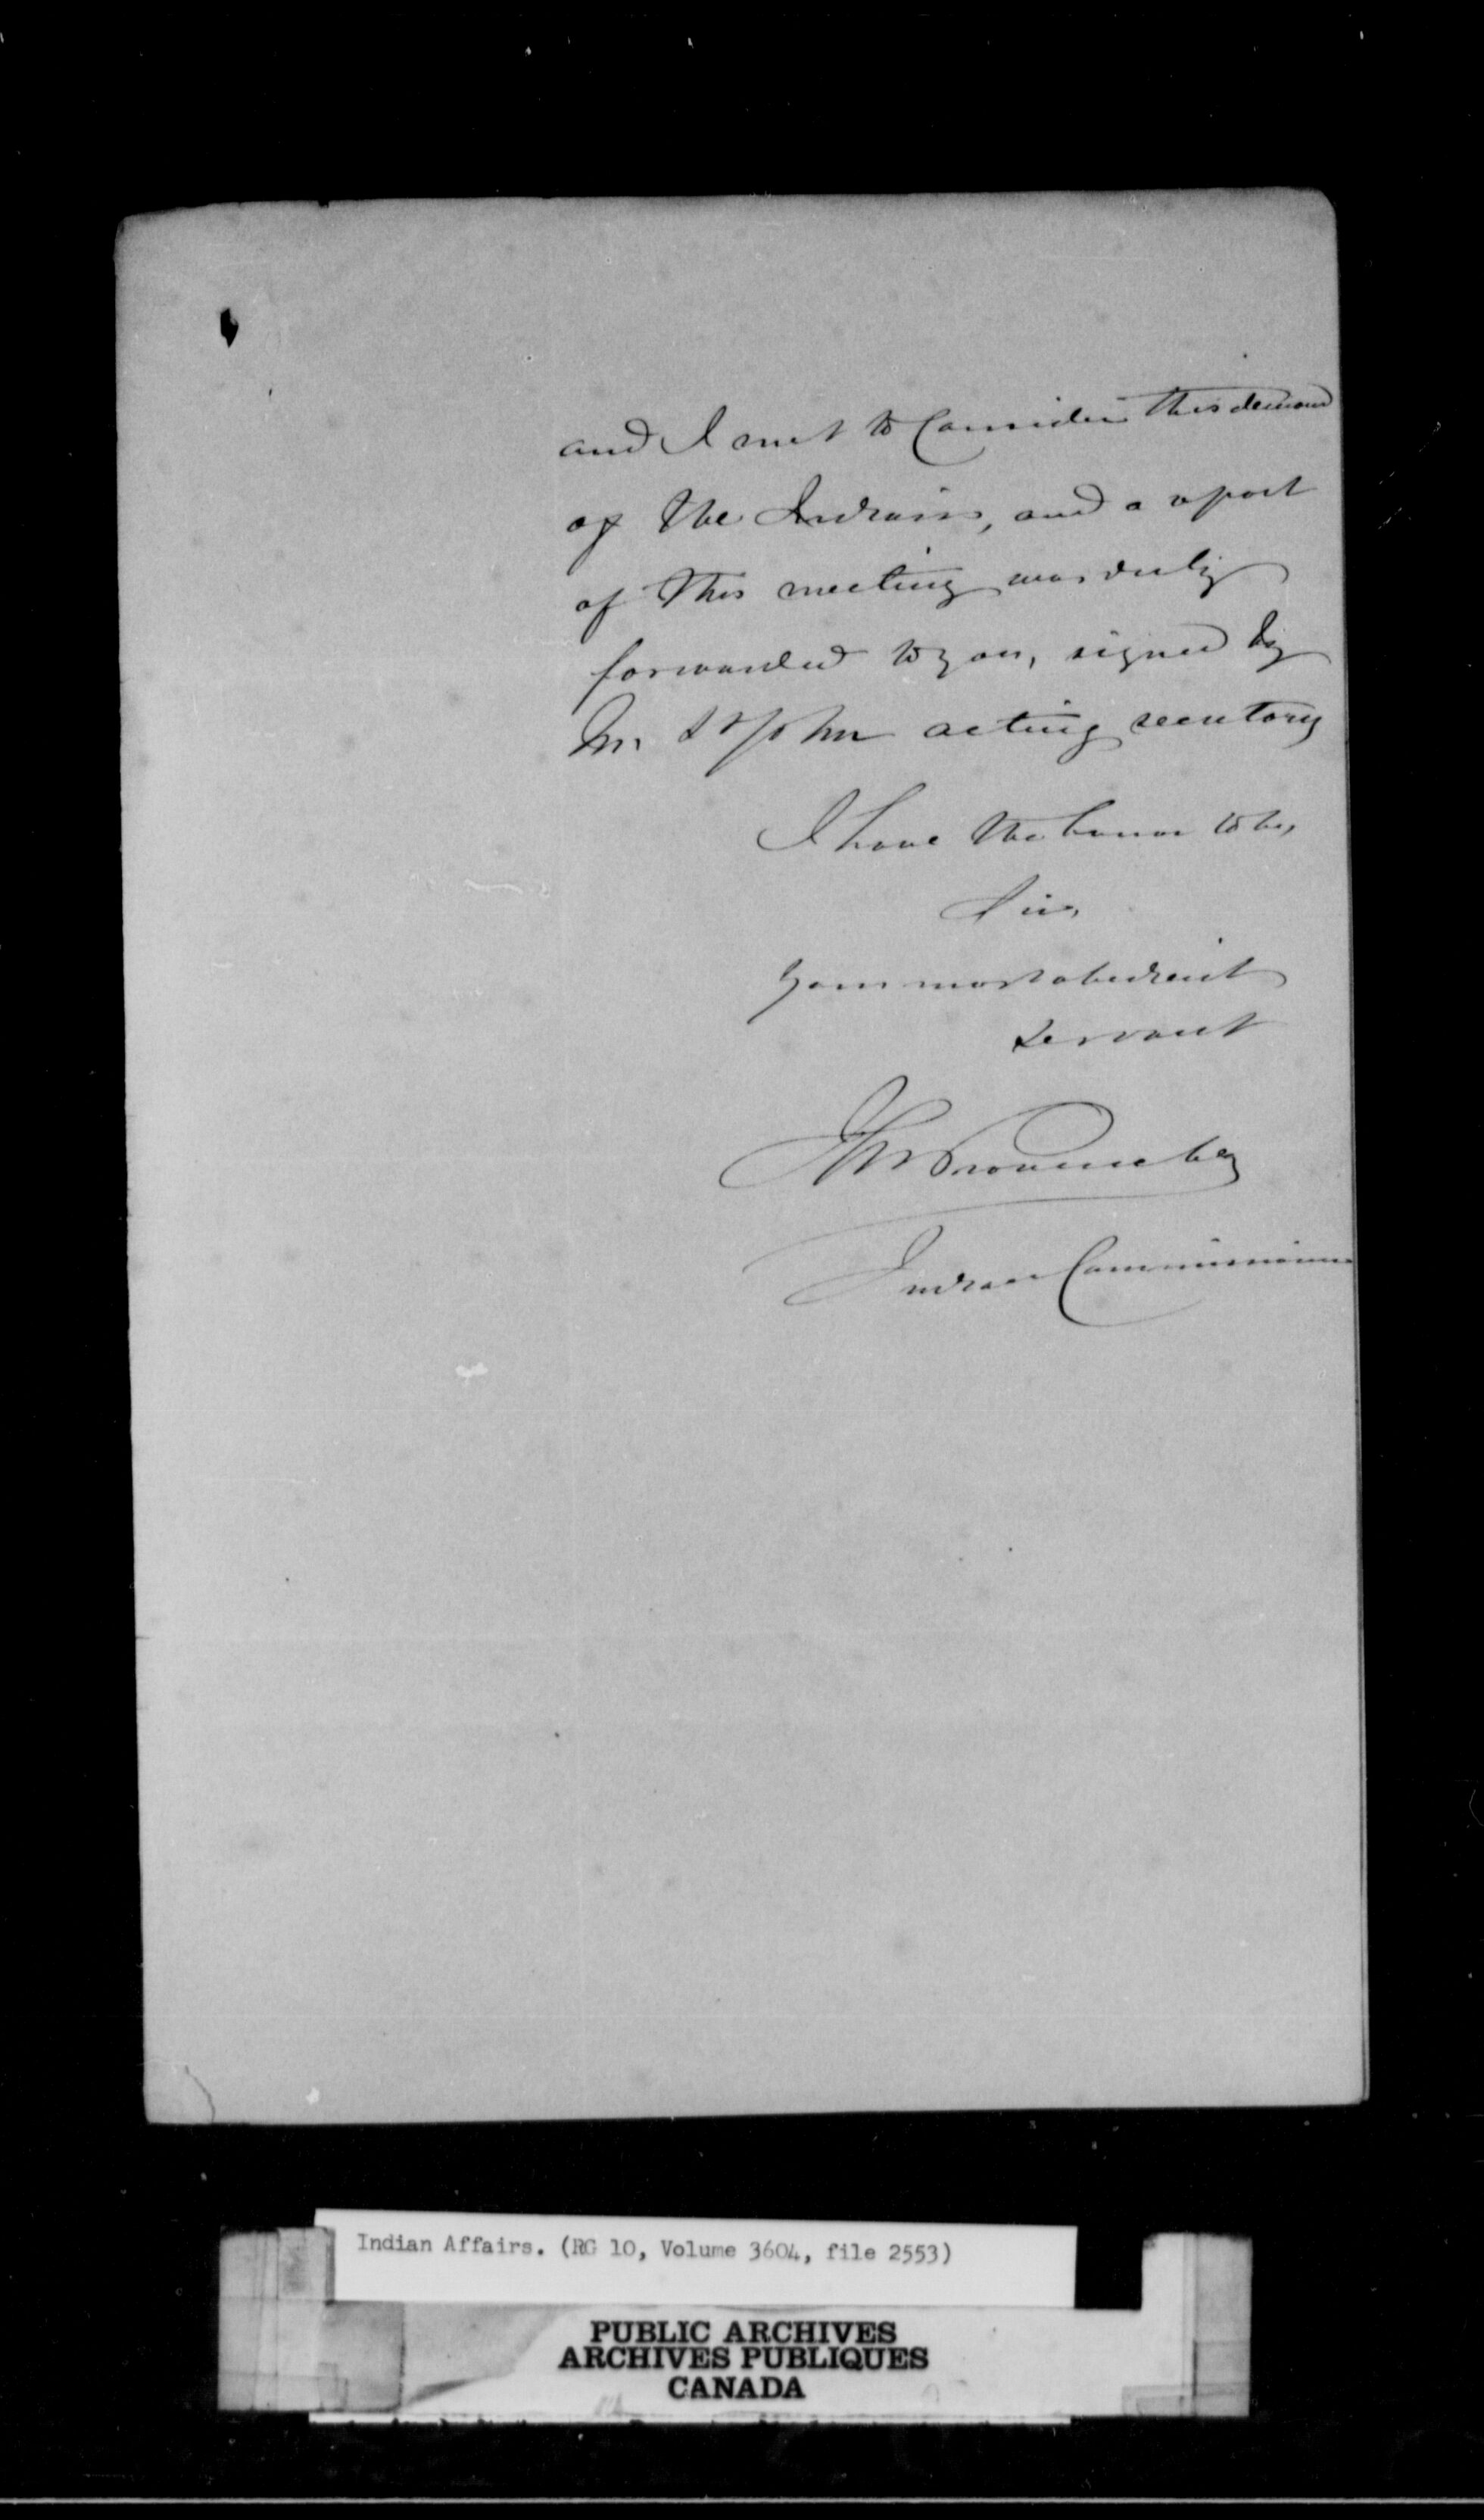 and I met to Consider this demand
of the Indians, and a report
of this meeting was duly
forwarded to you, signed by
Mr. St John acting secretary
I have the honor to be,
Sir,
Your most obedient
servant
JAN Provencher
Indian Commissioner
Indian Affairs. (RG 10, Volume 3604, file 2553)
PUBLIC ARCHIVES
ARCHIVES PUBLIQUES
CANADA